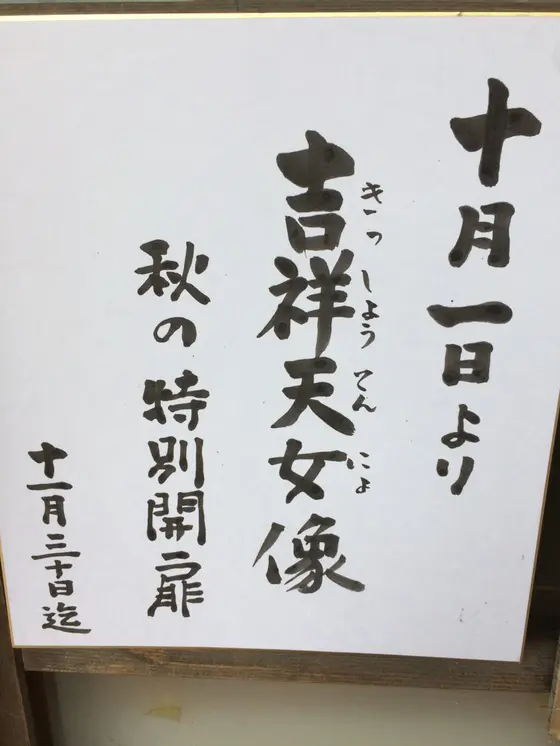 十月一日より
吉祥天女像
きっしょうてんにょ
秋の特別開扉
十一月三十日迄